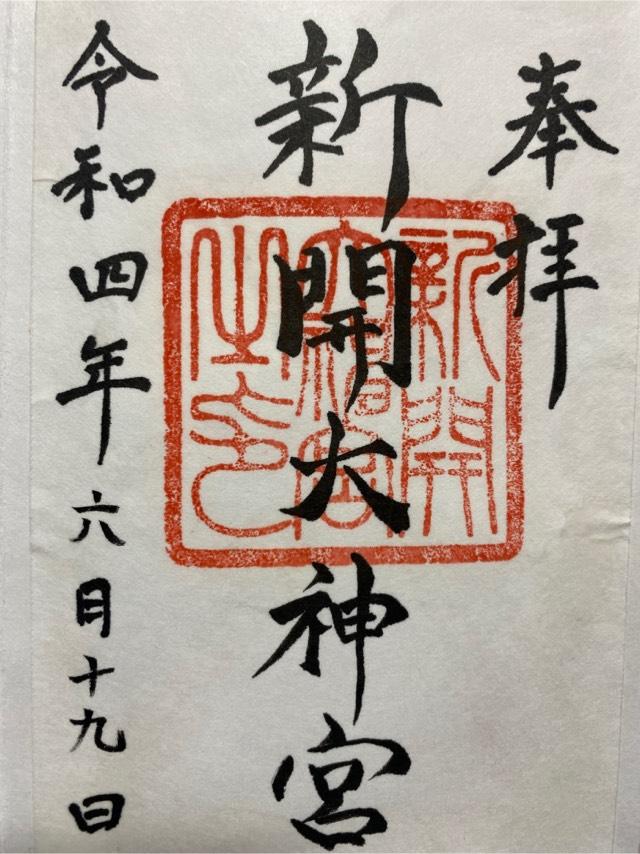 奉拝
新開大神宮
新開大神宮之印
令和四年六月十九日